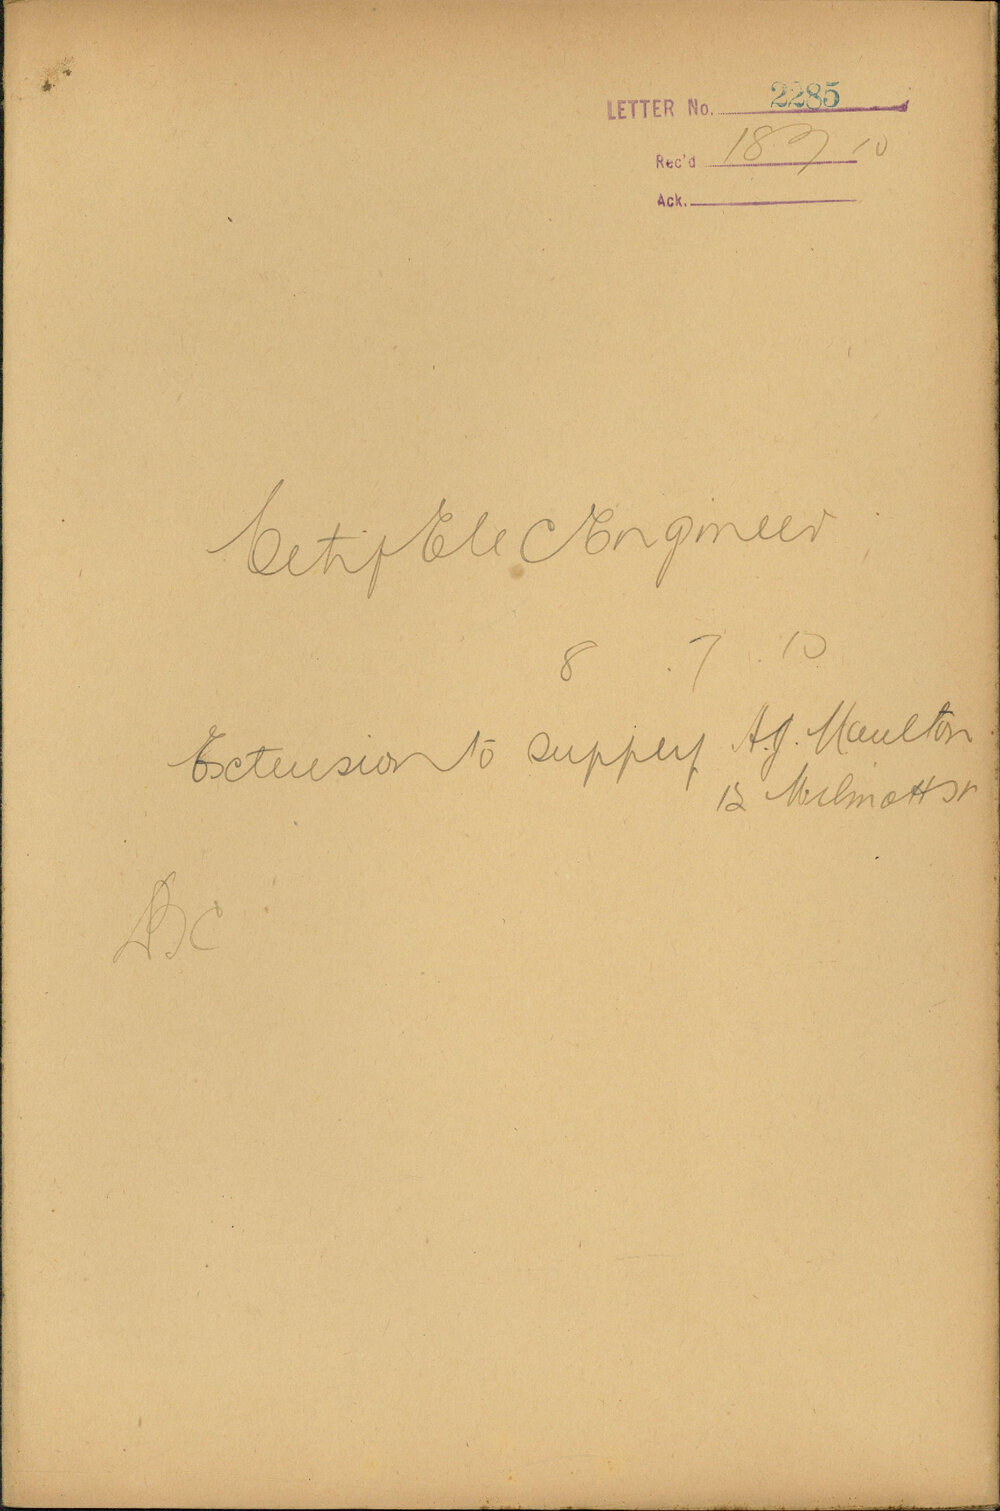 LETTER No. 2285
Rec'd 18 7 10
Ack.
City Elec Engineer
8 . 7 . 10
Extension to supply A.J. Maulton
12 St